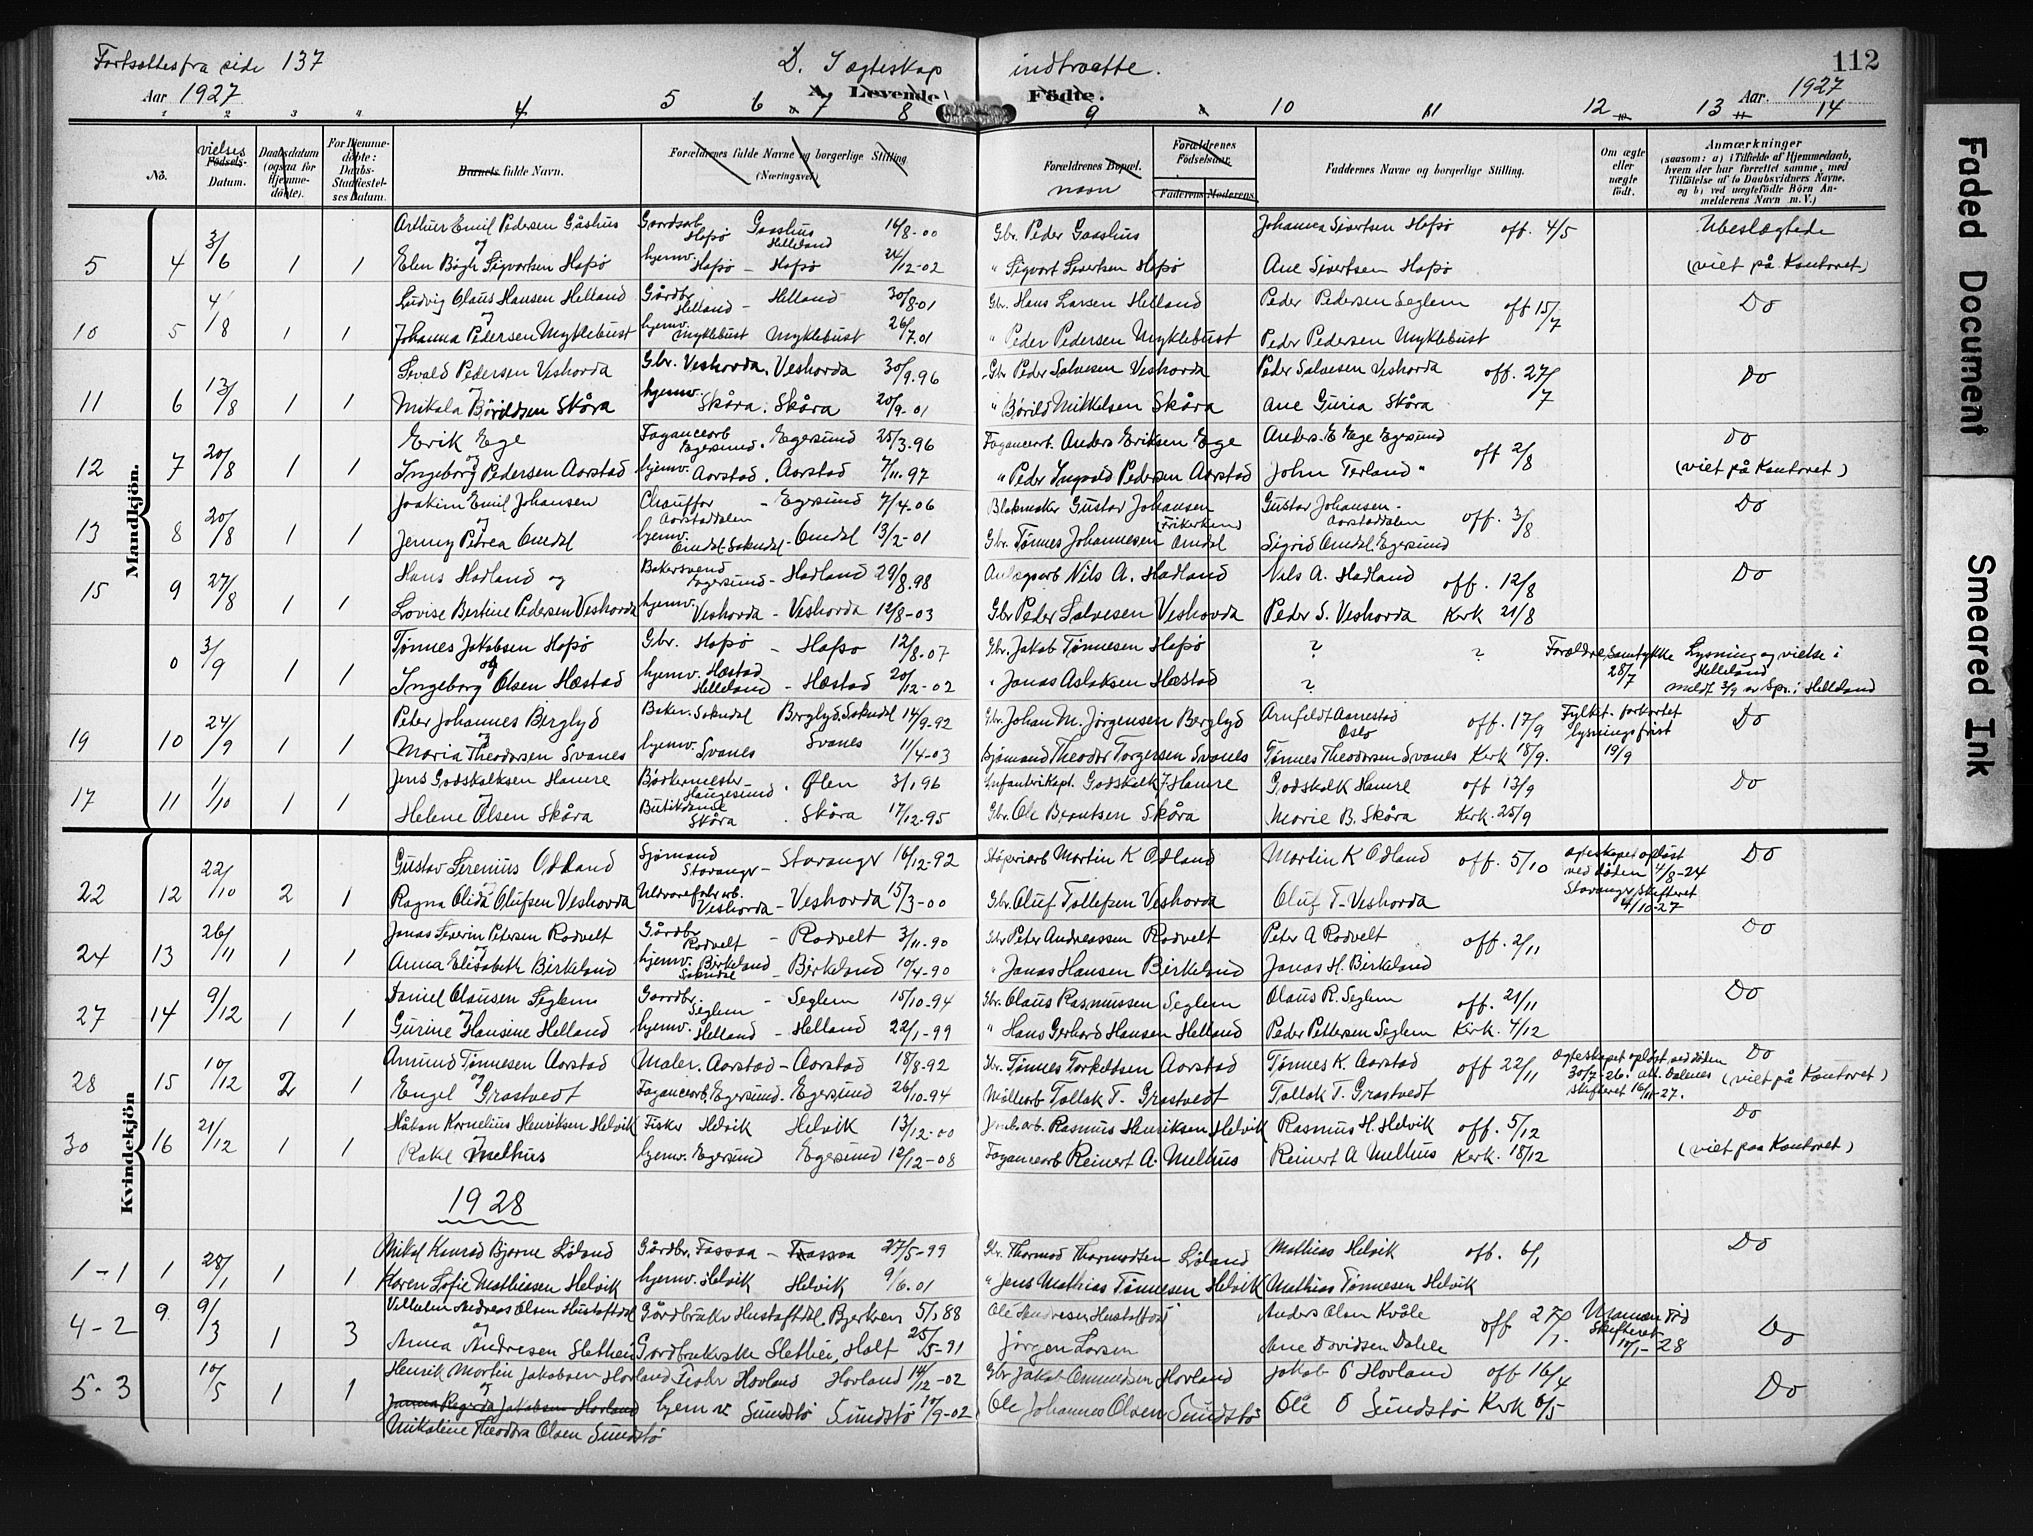 Fortsættes fra side 137
D. I ægteskap indtrætte.
112
Aar 1927
A. Levende Fødte.
Aar. 1927
1 2 3 4 5 6 7 8 9 10 11 12 13 14
No.
vielses
Fødsels-
Datum.
Daabsdatum
(ogsaa for
Hjemme-
døbte).
For Hjemme-
døbte:
Daabs-
Stadfæstel-
ses Datum.
Barnets fulde Navn.
Forældrenes fulde Navne og borgerlige Stilling
(Næringsvei)
Forældrenes Bopæl.
navn
Forældrenes
Fødselsaar.
Faderens Moderens
Faddernes Navne og borgerlige Stilling.
Om ægte
eller
uægte
født.
Anmærkninger
(saasom: a) i Tilfælde af Hjemmedaab,
hvem der har forrettet samme, med
Tilføielse af to Daabsvidners Navne.
og b) ved uægtefødte Børn An-
melderens Navn m. V.)
Mandkjön.
Arthur Emil Pedersen Gåshus Gaardsarb. Hafsø Gaashus Helleland 16/8-00 Gbr. Peder Gaashus Johanna Sivertsen Hafsø off. 4/5 Ubeslægtede
5 4 3/6 1 1 og
Elen Bågh Sigvartsen Hafsø hjemv. Hafsø - Hafsø 24/12-02 " Sigvart Sivertsen Hafsø Ane Sivertsen Hafsø (viet på Kontoret)
Ludvig Claus Hansen Helland Gårdbr. Helland - Helland 30/8-01 Gbr. Hans Larsen Helland Peder Pedersen Seglem off 15/7 Do
10 5 4/8 1 1 og
Johanna Pedersen Myklebust hjemv. Myklebust Myklebust 26/7.01 " Peder Pedersen Myklebust Peder Pedersen Myklebust
Sevald Pedersen Veshovda Gbr. Veshovda. Veshovda 30/9.96 Gbr Peder Salvesen Veshovda Peder Salvesen Veshovda off. 27/7 Do
11 6 13/8 1 1 og
Mikala Børildsen Skåra hjemv. Skåra. Skåra 20/9-01 " Børild Mikkelsen Skåra Ane Guria Skåra
Erik Ege Fayancearb Egersund. Egersund 25/3.96 Fayancearb. Anders Eriksen Ege Anders E Ege Egersund off 2/8 Do
12 7 20/8 1 1 og
Ingeborg Pedersen Aarstad hjemv. Aarstad. Aarstad 7/11.97 " Peder Ingvald Pedersen Aarstad John Terland " (viet på Kontoret)
Joakim Emil Johansen Chauffør Aarstaddalen - Egersund 7/4.06 Blokmaker Gustav Johansen (Frikirken) Gustav Johansen - Aarstaddalen off. 3/8 Do
13 8 20/8 1 1 og
Jenny Petrea Omdal hjemv. Omdal-Sokndal - Omdal 13/2-01 Gbr. Tønnes Johannesen Omdal Sigrid Omdal Egersund
Hans Hadland og Bakersvend Egersund - Hadland 29/8.98 Anlægsarb Nils A. Hadland Nils A. Hadland off. 12/8 Do
15 9 27/8 1 1
Lovise Bertine Pedersen Veshovda hjemv. Veshovda - Veshovda 12/8-03 Gbr Peder Salvesen Veshovda Peder S. Veshovda Kerk 21/8
Tønnes Jakobsen Hafsø Gbr. Hafsø - Hafsø 12/8-07 Gbr. Jakob Tønnesen Hafsø ? ? Forældre, Samtykke 28/7 Lysning og vielse i Helleland
0 3/9 1 1 og
Ingeborg Olsen Hæstad hjemv. Hæstad Helleland - Hæstad 20/12-02 " Jonas Aslaksen Hæstad ? meldt 3/9 av Spr. i Helleland
Peter Johannes Berglyd Baker. Sokndal Berglyd. Sokndal 14/9-92 Gbr. Johan M. Jørgensen Berglyd Arnfeldt Aanestad Oslo off. 17/9 Fylket. forkortet lysningsfrist 19/9 Do
19 10 24/9 1 1 og
Maria Theodorsen Svanes hjemv. Svanes Svanes 11/4-03 Sjømand Theodor Torgersen Svanes Tønnes Theodorsen Svanes Kerk 18/9.
Jens Godskalksen Hamre Bødkermester Haugesund. Ølen 3/1 96 Infanterikapt. Godskalk J Hamre Godskalk Hamre off 13/9 Do
17 11 1/10 1 1 og
Helene Olsen Skåra Butikdame Skåra. Skåra 17/12-95 Gbr. Ole Berntsen Skåra Marie B. Skåra Kerk. 25/9
Kvindekjön
Gustav Serenius Odland Sjømand Stavanger - Stavanger 16/12-92 Støperiarb Martin K Odland Martin K Odland off. 5/10 Ægteskapet opløst ved døden 4/8-24 Stavanger Skifteret 4/10-27 Do
22 12 22/10 2 1 og
Ragna Olida Olufsen Veshovda Uldvarefabr.arb. Veshovda - Veshovda 15/3-00 Gbr. Oluf Tollefsen Veshovda Oluf T- Veshovda
Jonas Severin Petersen Rodvelt Gårdbr. Rodvelt - Rodvelt 3/11-90 Gbr Peter Andreassen Rodvelt Peter A Rodvelt off. 2/11 Do
24 13 26/11 1 1 og
Anna Elisabeth Birkeland hjemv. Birkeland Sokndal - Birkeland 10/4-90 " Jonas Hansen Birkeland Jonas H. Birkeland
Daniel Clausen Seglem Gaardbr. Seglem - Seglem 15/10-94 Gbr. Claus Rasmussen Seglem Claus R. Seglem off. 21/11 Do
27 14 9/12 1 1 og
Gurine Hansine Helland hjemv. Helland - Helland 22/1-99 " Hans Gerhard Hansen Helland Peder Pettersen Seglem Kirk. 4/12
Amund Tønnesen Aarstad Maler. Aarstad - Aarstad 18/8-92 Gbr. Tønnes Torkelsen Aarstad Tønnes K. Aarstad off 22/11 Ægteskapet opløst ved døden 30/7-26. att. Dalenes skifteret 16/11-27. Do
28 15 10/12 2 1 og
Engel Grastvedt Fayancearb. Egersund. Egersund 26/10-94 Møllearb Tollak T. Grastvedt Tollak T. Grastvedt (viet på Kontoret)
Håkon Kornelius Henriksen Helvik Fisker Helvik Helvik 13/12-00 Rasmus Henriksen Helvik Rasmus H. Helvik off. 5/12 Do
30 16 21/12 1 1
Rakel Melhus hjemv. Egersund Egersund 12/12-08 Fayancearb Reinert A. Melhus Reinert A Melhus Kerk. 18/12 (viet paa Kontoret)
1928
Mikal Konrad Bjarne Løland Gårdbr. Fossaa - Fossaa 27/5-99 Gbr. Thormod Thormodsen Løland Mathias Helvik off. 6/1 Do
1-1 1 28/1 1 1
Karen Sofie Mathiasen Helvik hjemv. Helvik Helvik 9/6.01 " Jens Mathias Tønnesen Helvik Mathias Tønnesen Helvik
Vilhelm Andreas Olsen Hustoftdal Gårdbruker Hustoftdal, Bjerkreim 5/1 88 Ole Andresen Hustoftdal Anders Olsen Kvåle off 27/1. Skifteret 10/1-28 Do
4-2 9. 9/3 1 3 og
Anna Andresen Slethei Gårdbrukerske Slethei, Holt 25/5-91 Jørgen Larsen Ane Davidsen Dalele
Henrik Martin Jakobsen Hovland Fisker Hovland Hovland 14/12-02 Gbr Jakob Omundsen Hovland Jakob O Hovland off 16/4 Do
5-3 10/5 1 1 og
Jakobsen Hovland hjemv Sundstø Sundstø 10/9-02 Ole Johannes Olsen Sundstø Ole O Sundstø Kerk 6/5
Mikaline Theodora Olsen Sundstø
Faded Document
Smeared Ink